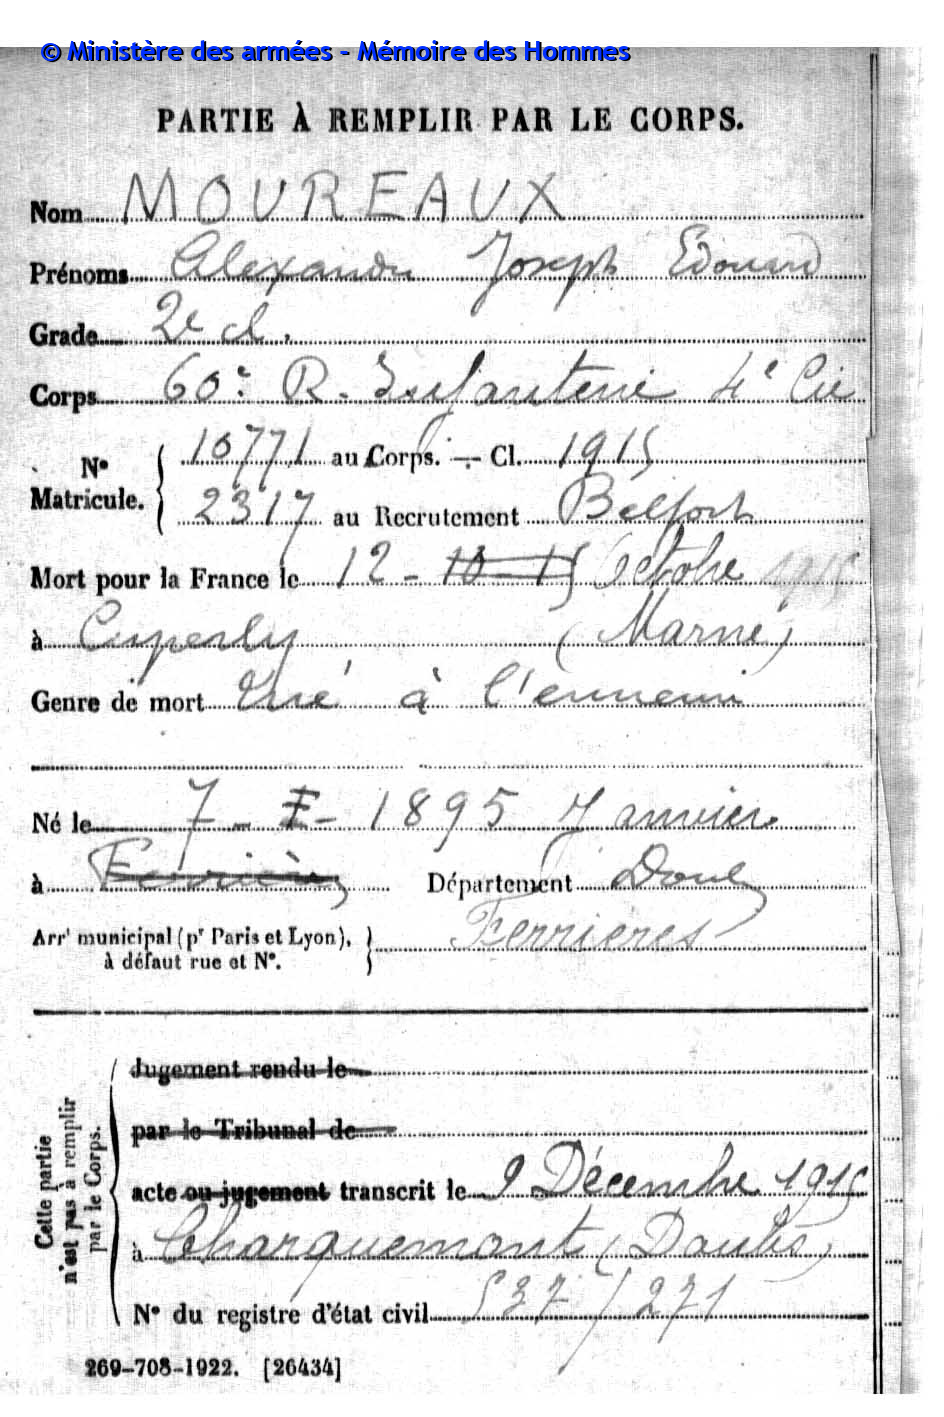 © Ministère des armées - Mémoire des Hommes
PARTIE À REMPLIR PAR LE CORPS.
Nom MOUREAUX
Prénoms Alexandre Joseph Edouard
Grade 2e cl.
Corps 60e R. Infanterie 4e Cie
N° Matricule. 10771 au Corps. — Cl. 1915
2317 au Recrutement Belfort
Mort pour la France le 12 - 10 - 15 Octobre 1915
à Cuperly (Marne)
Genre de mort Tué à l'ennemi
Né le 7 - 1 - 1895 Janvier
à Ferrières Département Doubs
Arrt municipal (pr Paris et Lyon), à défaut rue et N°. Ferrières
Cette partie n'est pas à remplir par le Corps.
Jugement rendu le
par le Tribunal de
acte ou jugement transcrit le 9 Décembre 1915
à Charquemont (Doubs)
N° du registre d'état civil 537/271
269-708-1922. [26434]